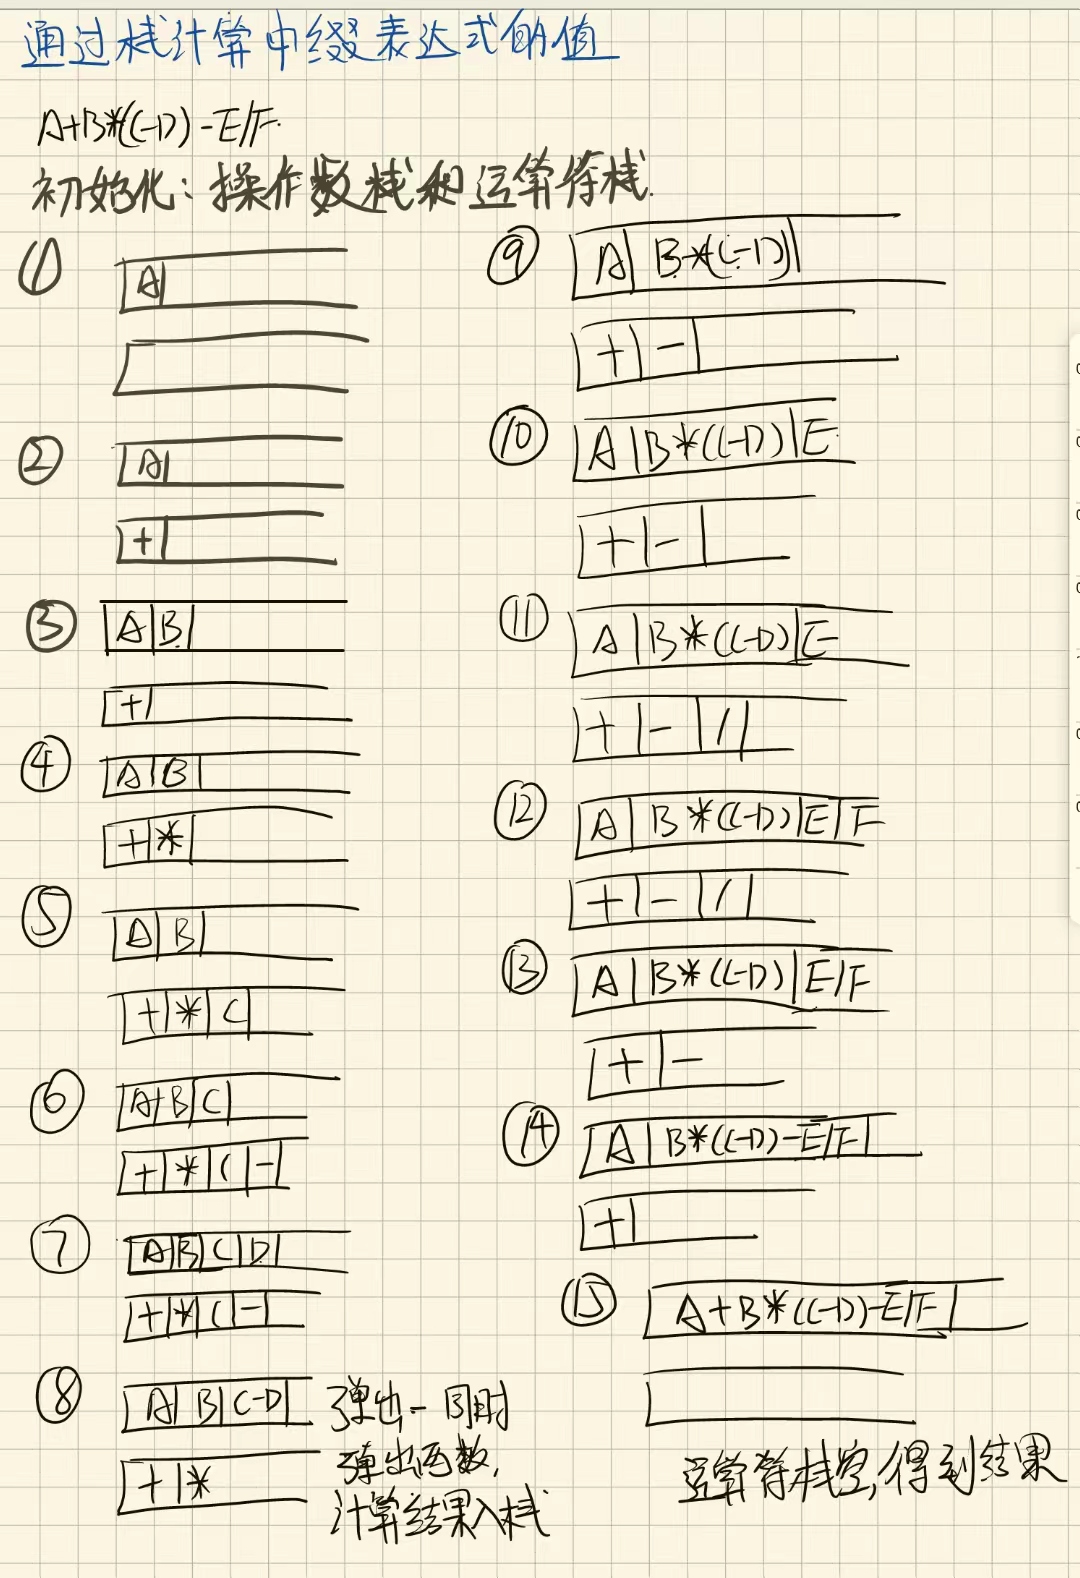 通过栈计算中缀表达式的值
A+B*(C-D)-E/F.
初始化:操作数栈和运算符栈.
①
A
②
A
+
③
A|B
+
④
A|B
+|*
⑤
A|B
+|*|(
⑥
A|B|C
+|*|(|-
⑦
A|B|C|D
+|*|(|-
⑧
A|B|C-D
+|*
弹出-同时
弹出两数,
计算结果入栈
⑨
A|B*(C-D)
+|-
⑩
A|B*(C-D)|E
+|-
⑪
A|B*(C-D)|E
+|-|/
⑫
A|B*(C-D)|E|F
+|-|/
⑬
A|B*(C-D)|E/F
+|-
⑭
A|B*(C-D)-E/F
+
⑮
A+B*(C-D)-E/F
运算符栈空,得到结果